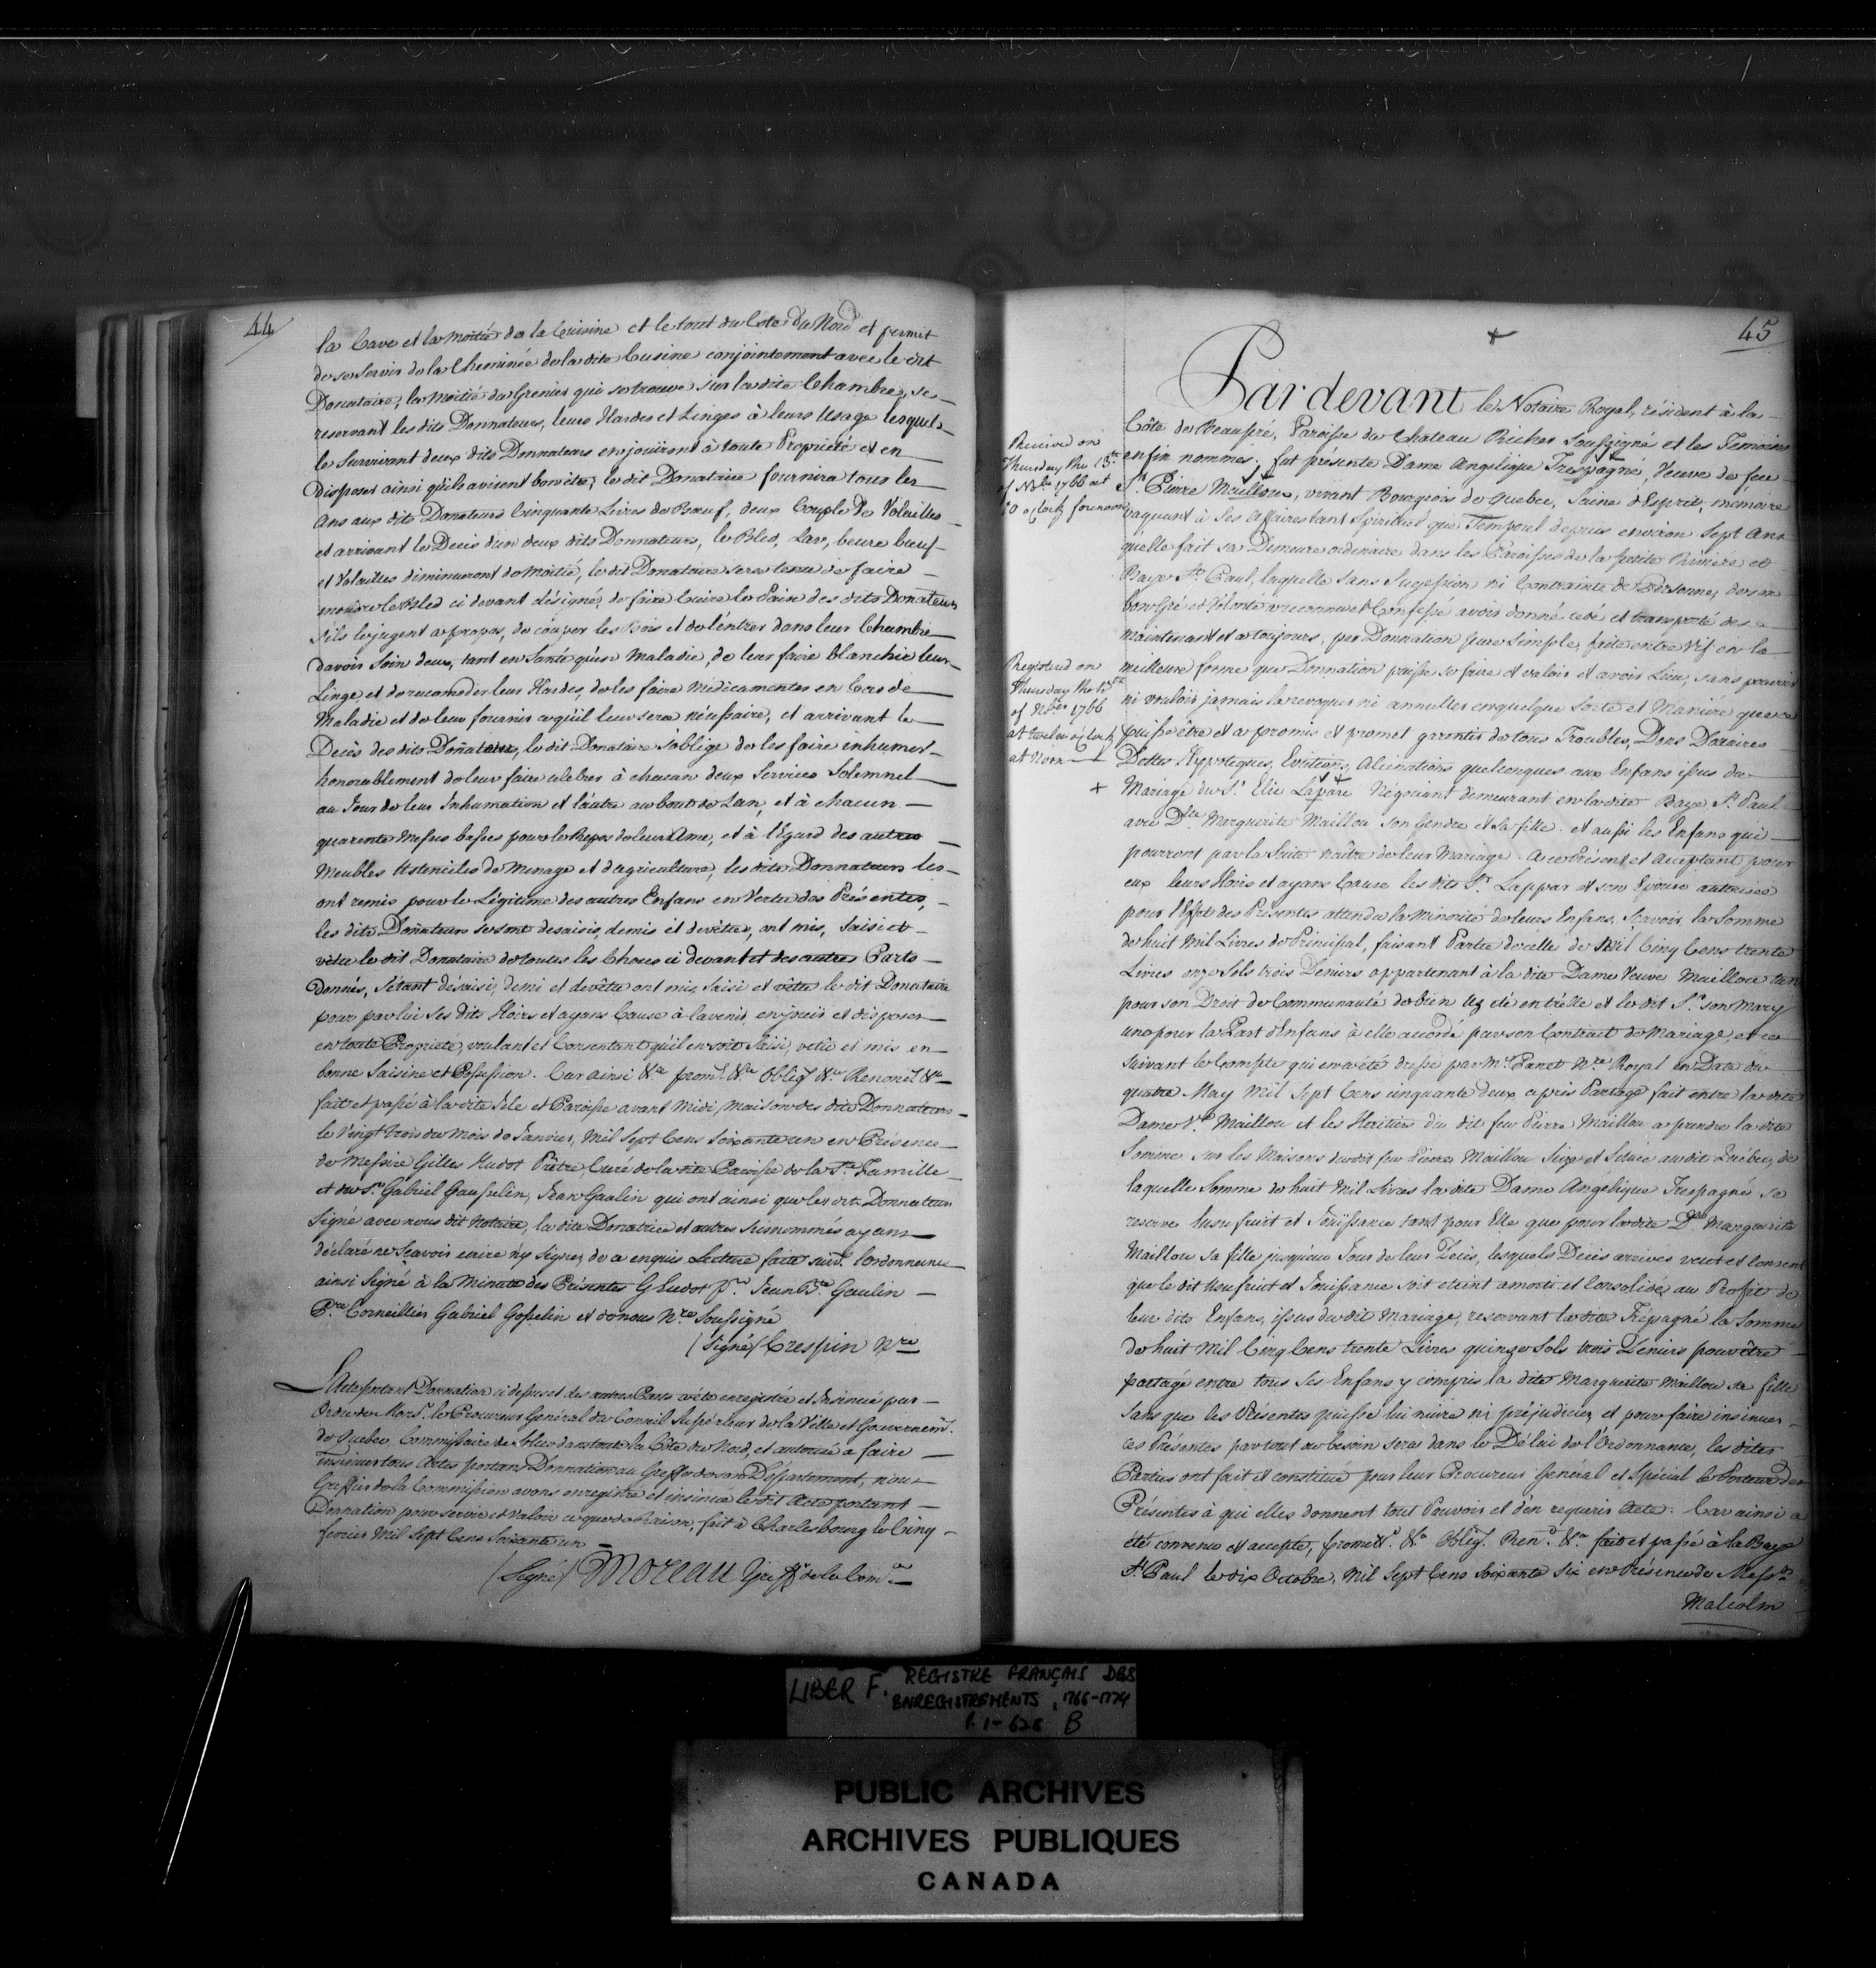 44
la Cave et la Moitié de la Cuisine et le tout du Coté du Nord et permit
de se Servir de la Cheminée de la dite Cusine conjointement avec le dit
Donataire, la Moitié du Grenier qui se trouve sur la dite Chambre, se
reservant les dits Donnateurs, leurs Hardes et Linges à leurs Usage lesquels
le Survivant deux dits Donnateurs en jouiront à toute Proprieté et en
disposer ainsi qu'ils aviseront bon être, le dit Donataire fournira tous les
Ans aux dits Donateurs Cinquante Livres de Bœuf, deux Couple de Volailles
et arrivant le Decès d'un deux dits Donnateurs, le Bled, Lar, beure bœuf
et Volailles diminueront de Moitié, le dit Donataire sera tenu de faire
moudre le Bled ci devant désigné, de faire Cuire le Pain des dits Donateurs
s'ils le jugent apropos, de couper les Bois et de l'entrer dans leur Chambre
d'avoir Soin deux, tant en Santé qu'en Maladie, de leur faire blanchir leur
Linge et de racomoder leur Hardes, de les faire Medicamenter en Cas de
Maladie et de leur fournir ce qu'il leur sera nécessaire, et arrivant le
Decès des dits Donateurs, le dit Donataire s'oblige de les faire inhumer
honorablement de leur faire celebrer à chacun deux Services Solemnel
au Jour de leur Inhumation et l'autre au bout de Lan, et à chacun
quarente Messes basses pour le Repos de leur Ame, et à l'Egard des autres
Meubles Ustenciles de Menage et d'agriculture, les dits Donnateurs les
ont remis pour le Légitime des autres Enfans en Vertu des Présentes,
les dits Donateurs se sont desaisis, demis et devêtus, ont mis, saisi et
vêtu le dit Donataire de toutes les Choses ci devant et des autres Parts
Donnés, s'étant désaisi, demi et devêtu ont mis, saisi et vêtu le dit Donataire
pour par lui Ses dits Hoirs et ayans Cause à lavenir en jouir et disposer
en toute Proprieté, voulant et Consentant qu'il en soit Saisi, vetû et mis en
bonne Saisine et Possession. Car ainsi &ca promt. &ca Obligt &ca Renont &ca
fait et passé à la dite Isle et Paroisse avant Midi Maison des dits Donnateurs
le Vingt trois du Mois de Janvier, Mil Sept Cens Soixante un en Présence
de Messire Gilles Eudot Prêtre, Curé de la dite Paroisse de la Ste Famille
et du Sr. Gabriel Gausselin, Jean Gaulin qui ont ainsi que les dits Donnateurs
Signé avec nous dit Notaire, la dite Donatrice et autres susnommés ayans
déclaré ne Scavoir ecrire n'y signer, de ce enquis Lecture faite suivt. lordonnance
ainsi Signé à la Minute des Présentes G Eudot Ptre. Jean Bte. Gaulin
Pre Corneillier Gabriel Gosselin et de nous Nre. Soussigné
/Signé/ Crespin Nre
L'Acte portant Donnation ci dessus et des autres Parts a été enregistré et Insinué par
Ordre de Monsr. le Procureur Général du Conseil Supérieur de la Ville et Gouvernemt.
de Quebec Commissaire etablie dans toute la Côte du Nord, et autorisé a faire
insinuer tous Actes portant Donnation au Greffe de son Département, nous
Greffier de la Commission avons enregistré et insinué le dit Acte portant
Donnation pour servir et valoir ce que de Raison, fait à Charlesbourg le Cinq
fevrier Mil Sept Cens Soixante un
/Signé/ Moreau Greffr de la Comon
45
Par devant le Notaire Royal, résident à la
Côte de Beaupré, Paroisse du Chateau Richer Soussigné et les Temoins
enfin nommés; fut présente Dame Angelique Trespagné, Veuve de feu
Sr. Pierre Maillou, vivant Bourgeois de Quebec, Saine d'Esprit, mémoire
vaquant à Ses Affaires tant Spirituel que Temporel depuis environ Sept Ans
qu'elle fait sa Demeure ordinaire dans les Paroisses de la petite Rivière et
Baye St. Paul, laquelle Sans Sugession ni Contrainte de Personne, de son
bon Gré et Volonté a reconnu et Confessé avoir donné cedé et transporté des
maintenant et a toujours, par Donnation pure Simple, faite entre Vif en la
meilleure forme que Donnation puisse se faire et valoir et avoir Lieu, sans pouvoir
ni vouloir jamais la revoquer ni annuller en quelque Sorte et Maniére que ce
puisse être et a promis et promet garentir de tous Troubles, Dons Douaires
Dettes Hypoteques, Evitions, Alienations quelconques aux Enfans issus du
Mariage du Sr. Elie Lapare Négociant demeurant en la dite Baye St. Paul
avec Dlle Marguerite Maillou son Gendre et sa fille. et aussi les Enfans qui
pourront par la Suite naître de leur Mariage. A ce Présent et Acceptant pour
eux leurs Hoirs et ayans Cause les dits Sr. Lappar et son Epouse autorisée
pour l'Effet des Présentes attendu la Minorité de leurs Enfans, Sçavoir la Somme
de huit Mil Livres de Principal, faisant Partie de celle de Mil Cinq Cens trente
Livres onze Sols trois Deniers appartenant à la dite Dame Veuve Maillou tant
pour son Droit de Communauté de bien été entr'elle et le dit Sr. son Mary
une pour la Part d'Enfans à elle accordé par son Contrait de Mariage, et ce
suivant le Compte qui en a été dressé par Mr. Panet Nre Royal en Date du
quatre May Mil Sept Cens cinquante deux après Partage fait entre la dite
Dame Ve Maillou et les Heritiers du dit feu Pierre Maillou a prendre la dite
Somme sur les Maisons du dit feu Pierre Maillou Size et Située au dit Quebec, de
laquelle Somme de huit Mil Livres la dite Dame Angelique Trespagnés se
reserve lusufruit et Jouissance tant pour Elle que pour la dite Dlle Marguerite
Maillou Sa fille jusqu'au Jour de leur Decès, lesquels Decès arrivés veut et consent
que le dit Usufruit et Jouissance soit eteint amorti et Consolidé, au Profit de
leur dits Enfans, issus du dit Mariage, reservant la dite Trépagné la Somme
de huit Mil Cinq Cens trente Livres quinze Sols trois Deniers pour être
partagé entre tous Ses Enfans y compris la dite Marguerite Maillou sa fille
Sans que les Présentes puisse lui nuire ni préjudicier, et pour faire insinuer
ces Présentes partout au besoin sera dans le Délai de l'Ordonnance, les dites
Parties ont fait et constitué pour leur Procureur Général et Spécial le Porteur des
Présentes à qui elles donnent tout Pouvoir et d'en requerir Acte. Car ainsi a
été convenu et accepté, promett. &ca Oblig. Ren. &ca. fait et passé à la Baye
St. Paul le dix Octobre, Mil Sept Cens Soixante Six en Présence de Messrs
Malcolm
Received on
Thursday the 13th
of Nbre 1766 at
10 o,Clock forenoon
Registred on
Thursday the 13th
of Nbre 1766
at twelve o,Clock
at Noon
LIBER F. REGISTRE FRANÇAIS DES
ENREGISTREMENTS, 1766-1774
P. 1-628 B
PUBLIC ARCHIVES
ARCHIVES PUBLIQUES
CANADA